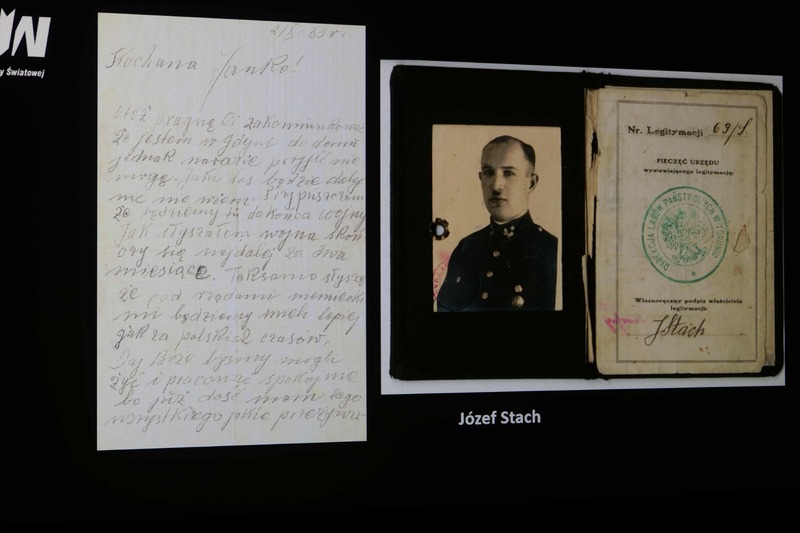 y Światowej
Kochana Janko!
Otóż pragnę Ci zakomunikować
że jestem w Gdyni do domu
jednak narazie przyjść nie
mogę. Jaki los będzie dalej
nic nie wiem. Przypuszczam
że będziemy tu do końca wojny
Jak słyszałem wojna skoń
czy się najdalej za dwa
miesiące. Taksamo słyszę
że pod rządami niemiecki
mi będziemy mieli lepiej
jak za polskich czasów.
Daj Boże byśmy mogli
żyć i pracować spokojnie
bo już dość mam tego
wszystkiego jakie
Nr. Legitymacji 63/I
PIECZĘĆ URZĘDU
wystawiającego legitymację:
DYREKCJA LASÓW PAŃSTWOWYCH W TORUNIU
Własnoręczny podpis właściciela
legitymacji:
JStach
Józef Stach